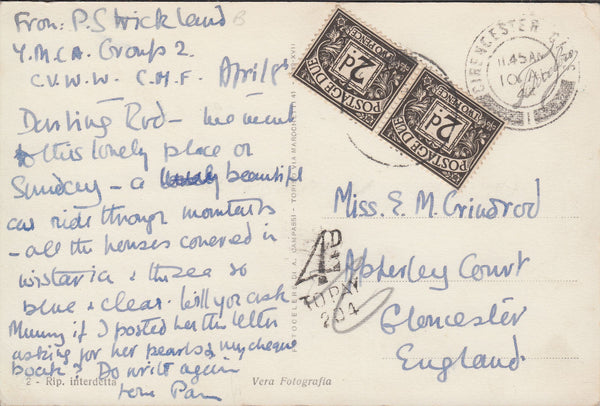 From: P. Strickland
Y.M.C.A. Group 2
C.V.W.W. C.M.F. April 8th
Darling Rod – we went
to this lovely place on
Sunday – a beautiful
car ride through mountains
– all the houses covered in
wistaria & the sea so
blue & clear. Will you ask
Mummy if I posted her the letter
asking for her pearls & my cheque
book? Do write again
love Pam
2 - Rip. interdetta
Vera Fotografia
POSTAGE DUE
2d.
TWO PENCE
POSTAGE DUE
2d.
TWO PENCE
CIRENCESTER
11.45 AM
10 AP
1
4D
TO PAY
204
Miss. E. M. Grindrod
Apperley Court
Gloucester
England